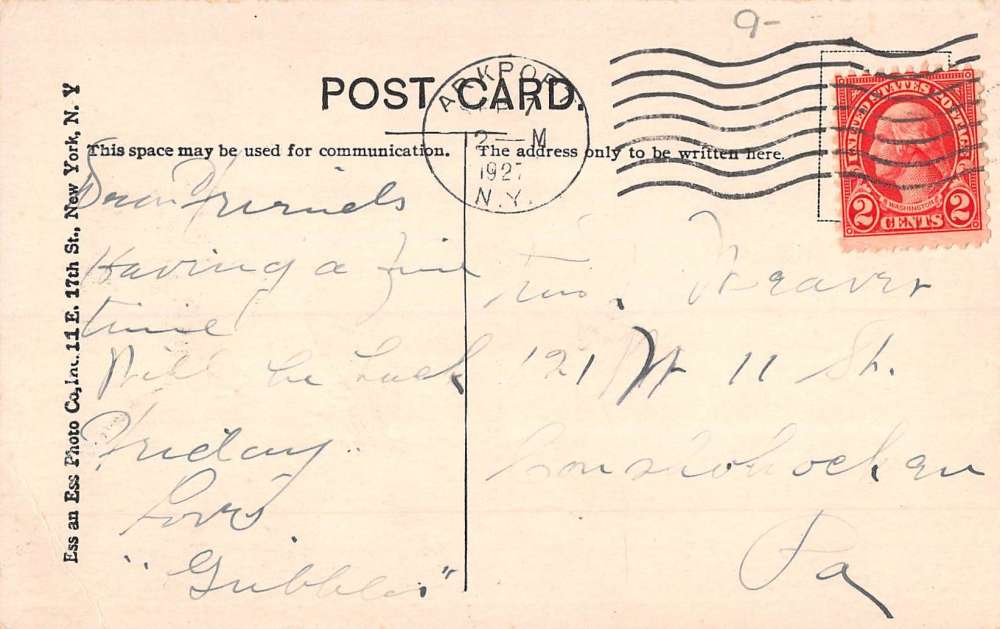 9-
POST CARD.
ARKPORT
2-M
1927
N.Y.
UNITED STATES POSTAGE
WASHINGTON
2 CENTS 2
Ess an Ess Photo Co., Inc. 11 E. 17th St., New York, N. Y
This space may be used for communication.
Dear Friends
Having a fine
time
Will be back
Friday.
Love
"Gubbles"
The address only to be written here.
Weaver
121 W 11 St.
Conshohocken
Pa